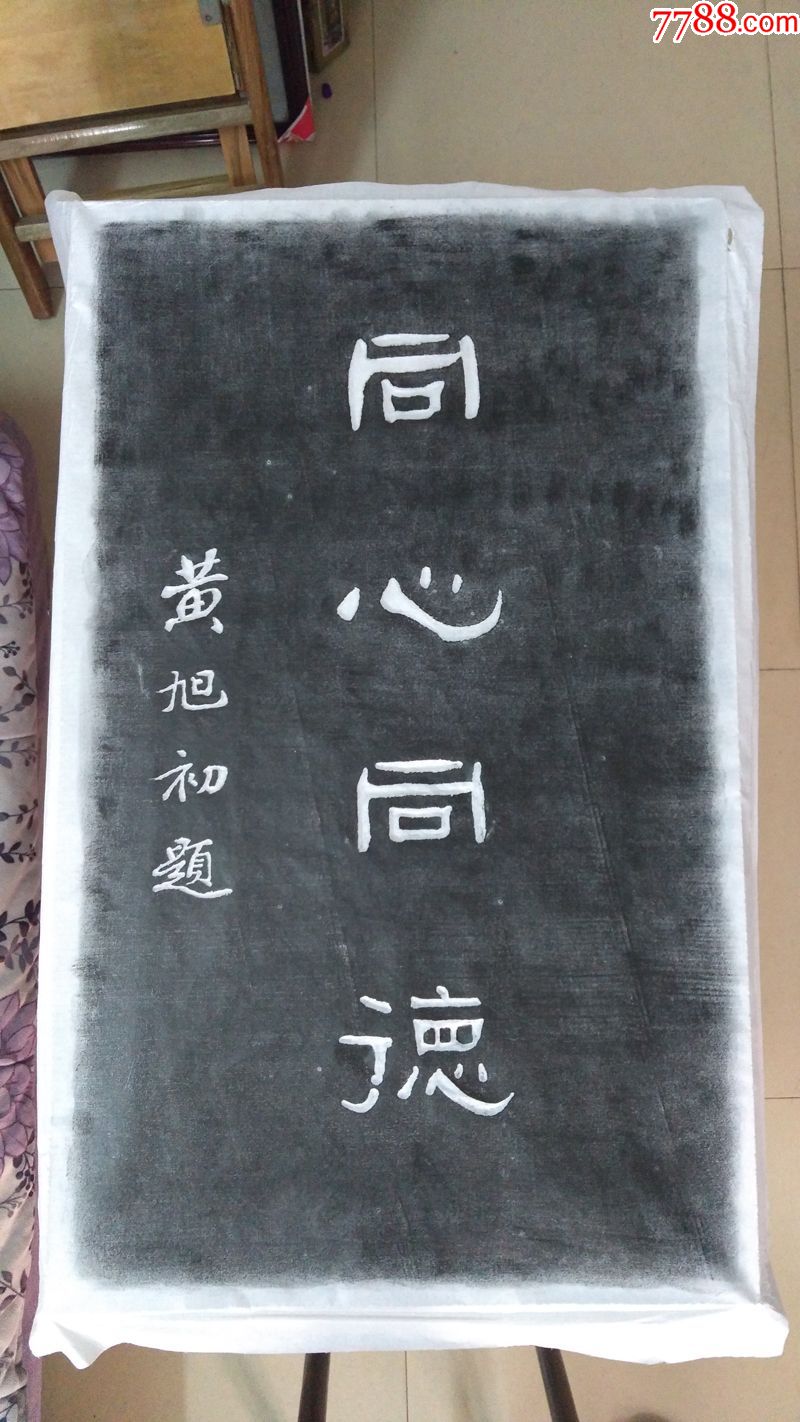 7788.com
同心同德
黃旭初題